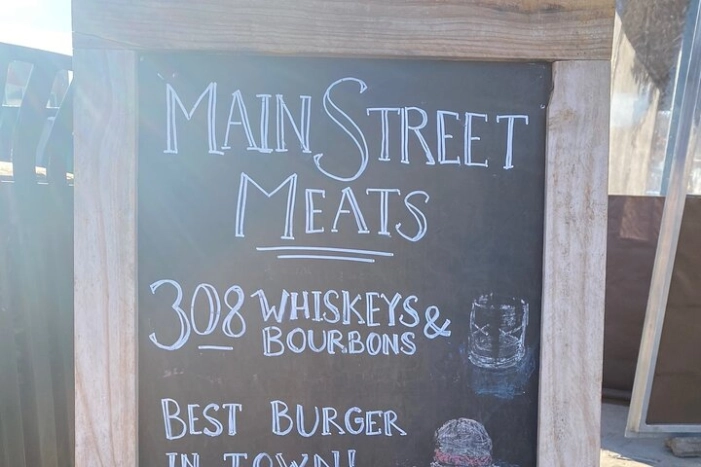 MAIN STREET
MEATS
308 WHISKEYS &
BOURBONS
BEST BURGER
IN TOWN!